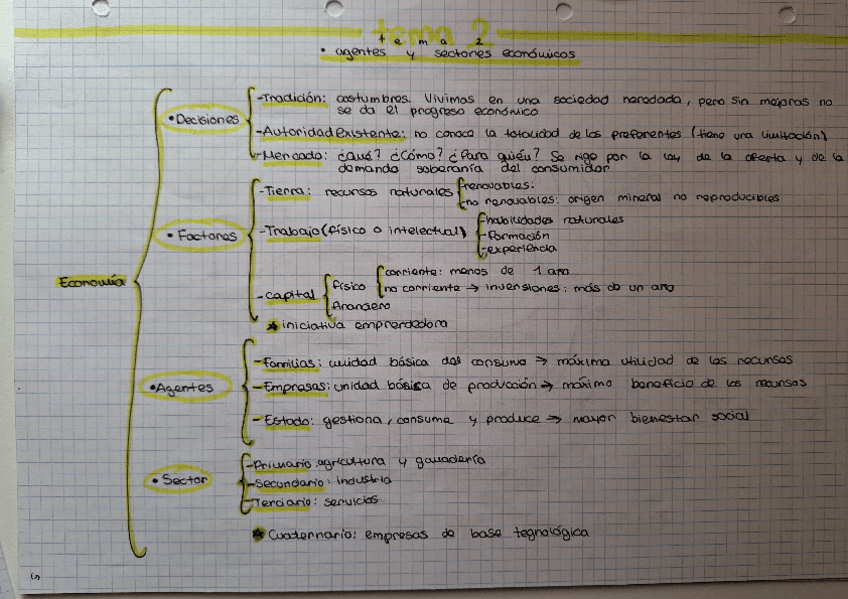 tema 2
tema 2
• agentes y sectores económicos
Economía
• Decisiones
- Tradición: costumbres. Vivimos en una sociedad heredada, pero sin mejoras no
se da el progreso económico
- Autoridad Existente: no conoce la totalidad de las preferentes (tiene una limitación)
- Mercado: ¿Qué? ¿Cómo? ¿Para quién? Se rige por la ley de la oferta y de la
demanda soberanía del consumidor
• Factores
- Tierra: recursos naturales
renovables:
no renovables: origen mineral no reproducibles
- Trabajo (físico o intelectual)
- habilidades naturales
- formación
- experiencia
- Capital
físico
corriente: menos de 1 año
no corriente → inversiones: más de un año
financiero
★ iniciativa emprendedora
• Agentes
- Familias: unidad básica del consumo → máxima utilidad de los recursos
- Empresas: unidad básica de producción → máximo beneficio de los recursos
- Estado: gestiona, consume y produce → mayor bienestar social
• Sector
- Primario: agricultura y ganadería
- Secundario: industria
- Terciario: servicios
★ Cuaternario: empresas de base tegnológica